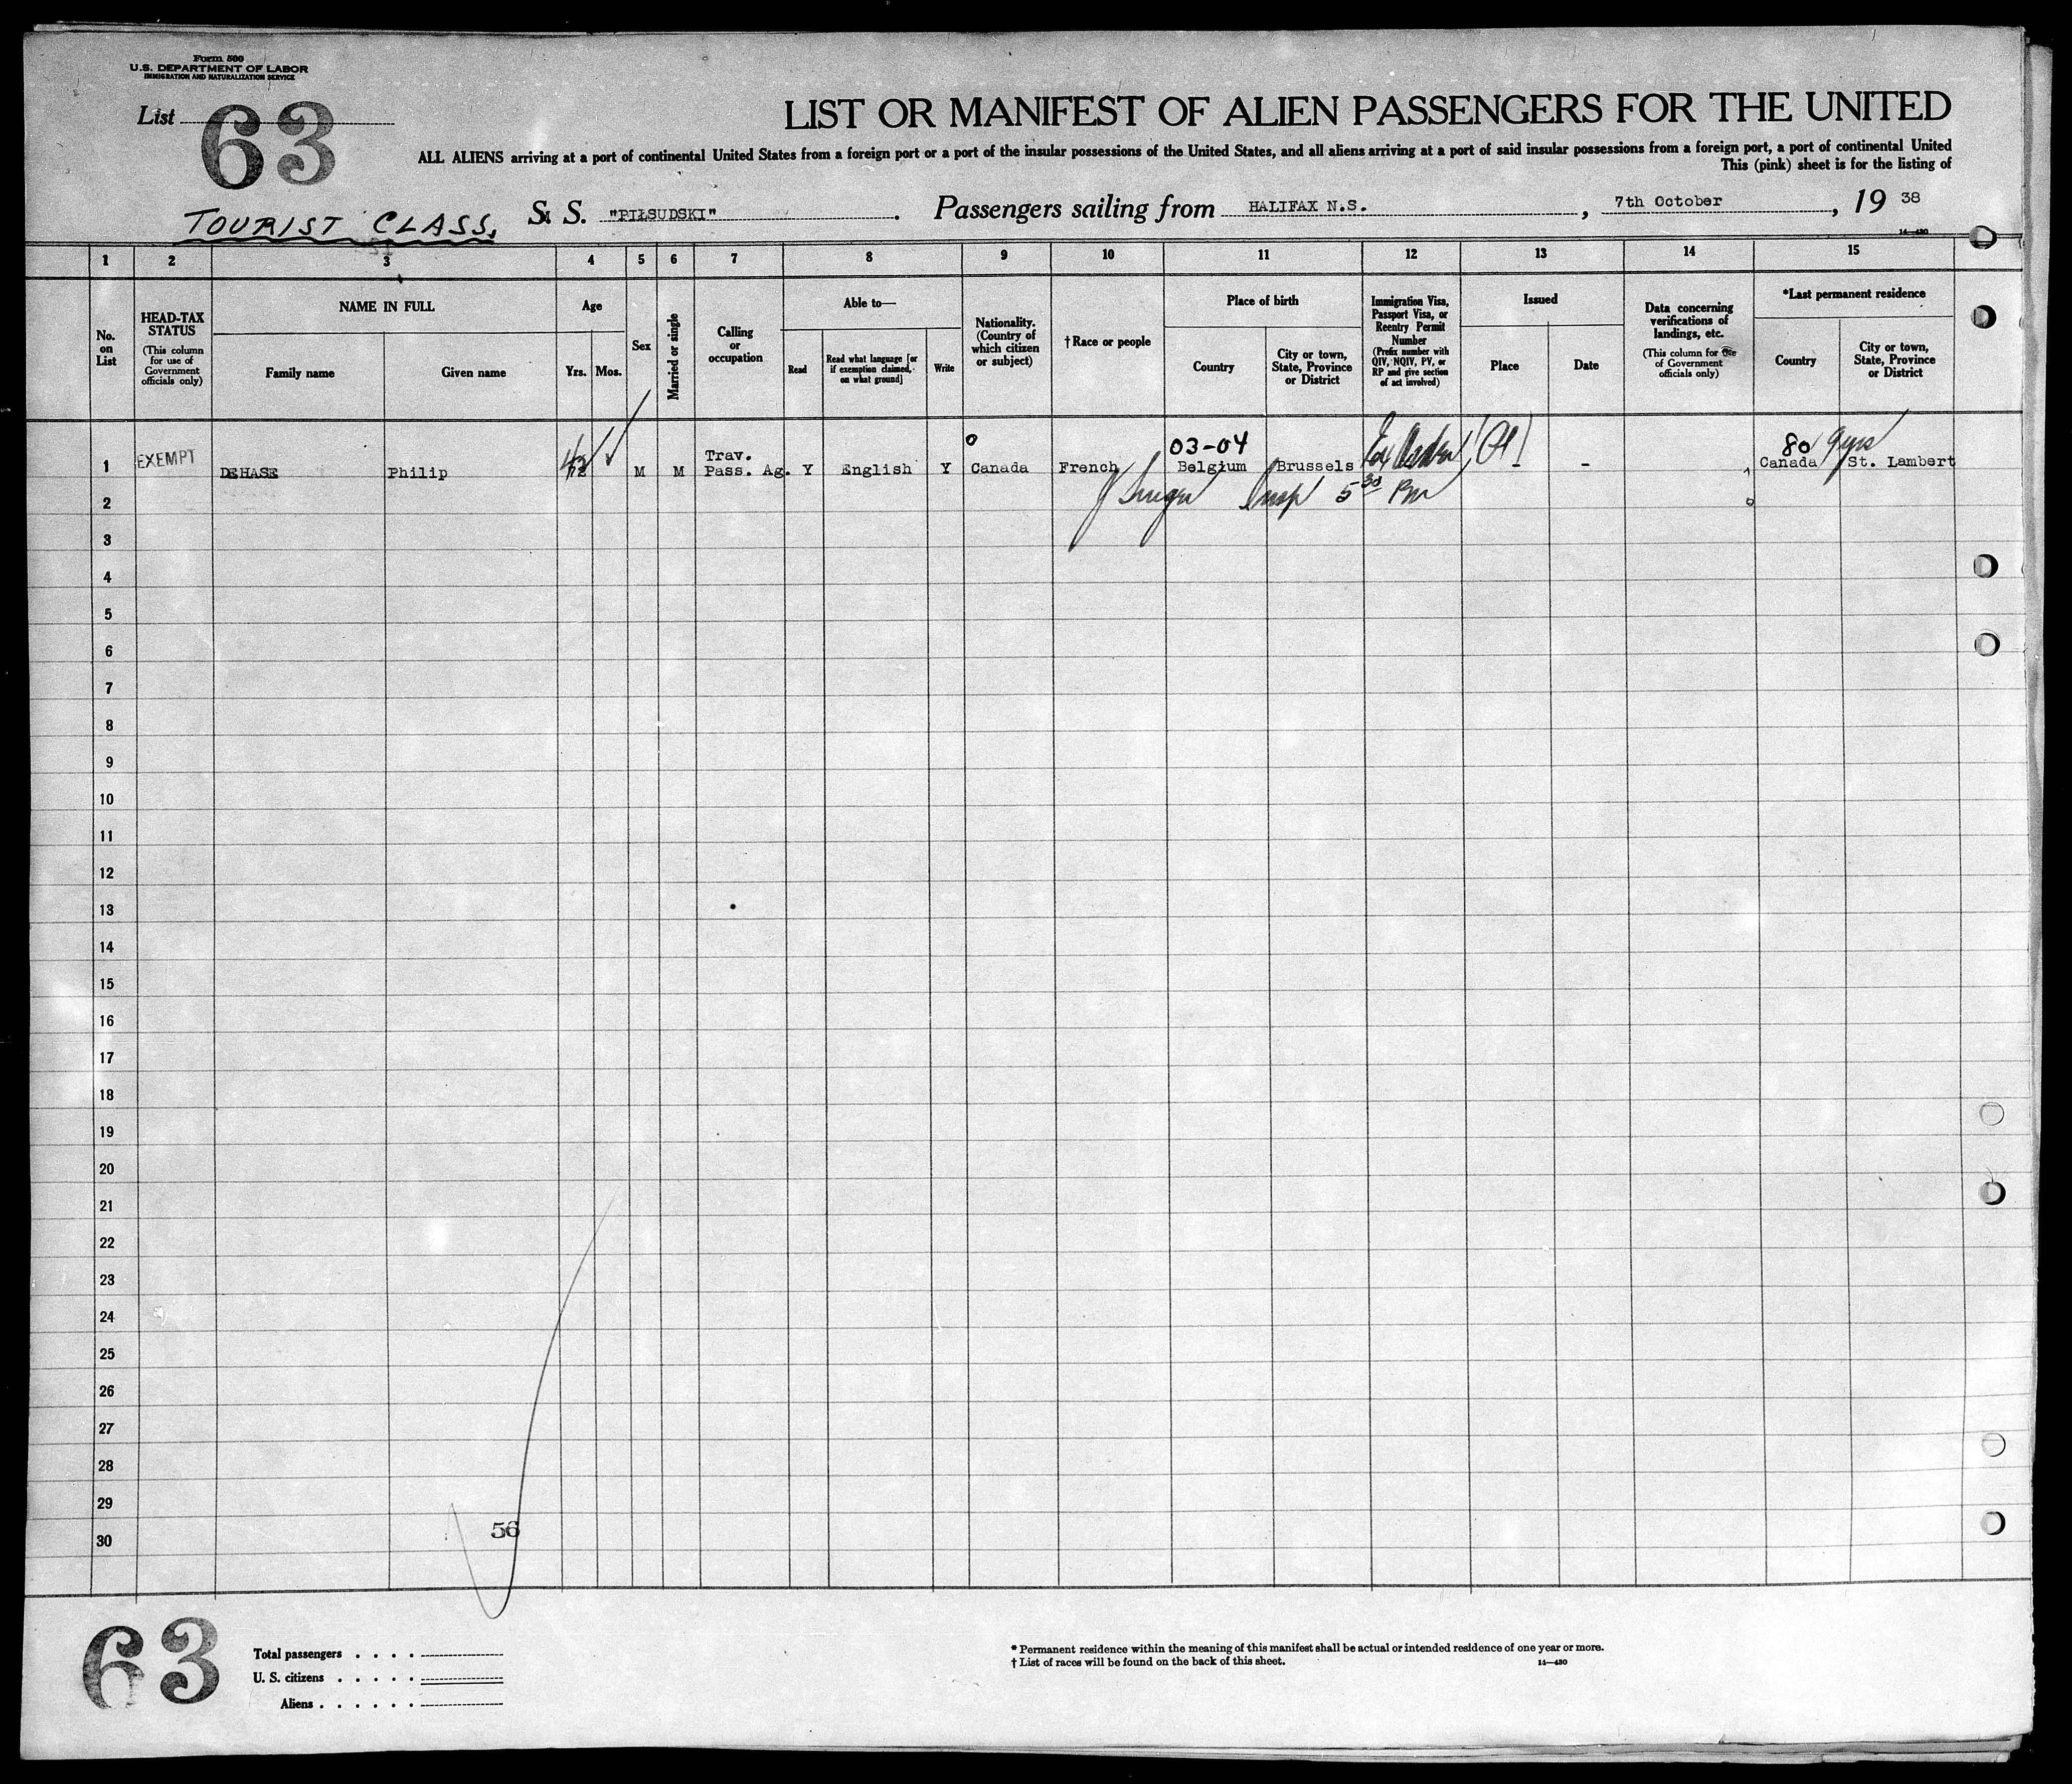 Form 500
U.S. DEPARTMENT OF LABOR
IMMIGRATION AND NATURALIZATION SERVICE
List 63
LIST OR MANIFEST OF ALIEN PASSENGERS FOR THE UNITED
ALL ALIENS arriving at a port of continental United States from a foreign port or a port of the insular possessions of the United States, and all aliens arriving at a port of said insular possessions from a foreign port, a port of continental United
This (pink) sheet is for the listing of
TOURIST CLASS.
S. S. "PIŁSUDSKI" . Passengers sailing from HALIFAX N.S. , 7th October , 19 38
14—430
1 2 3 4 5 6 7 8 9 10 11 12 13 14 15
No. on List
HEAD-TAX STATUS
(This column for use of Government officials only)
NAME IN FULL
Family name
Given name
Age
Yrs.
Mos.
Sex
Married or single
Calling or occupation
Able to—
Read
Read what language [or if exemption claimed, on what ground]
Write
Nationality. (Country of which citizen or subject)
† Race or people
Place of birth
Country
City or town, State, Province or District
Immigration Visa, Passport Visa, or Reentry Permit Number
(Prefix number with QIV, NQIV, PV, or RP and give section of act involved)
Issued
Place
Date
Data concerning verifications of landings, etc.
(This column for use of Government officials only)
*Last permanent residence
Country
City or town, State, Province or District
03-04
80 9 yrs
1 EXEMPT DEHASE Philip M M Trav. Pass. Ag. Y English Y Canada French Belgium Brussels - - Canada St. Lambert
Insp 5 30 Pm
2
3
4
5
6
7
8
9
10
11
12
13
14
15
16
17
18
19
20
21
22
23
24
25
26
27
28
29
56
30
63
Total passengers . . . .
U. S. citizens . . . . .
Aliens . . . . . .
* Permanent residence within the meaning of this manifest shall be actual or intended residence of one year or more.
† List of races will be found on the back of this sheet.
14—430